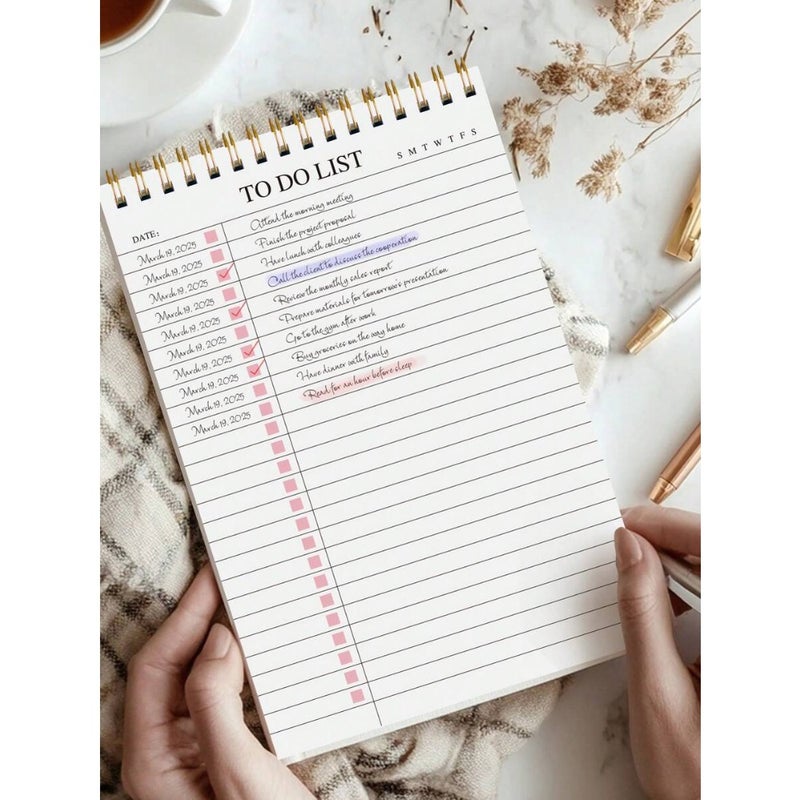 TO DO LIST
S M T W T F S
DATE:
March 19, 2025 Attend the morning meeting
March 19, 2025 Finish the project proposal
March 19, 2025 Have lunch with colleagues
March 19, 2025 Call the client to discuss the cooperation
March 19, 2025 Review the monthly sales report
March 19, 2025 Prepare materials for tomorrow's presentation
March 19, 2025 Go to the gym after work
March 19, 2025 Buy groceries on the way home
March 19, 2025 Have dinner with family
March 19, 2025 Read for an hour before sleep